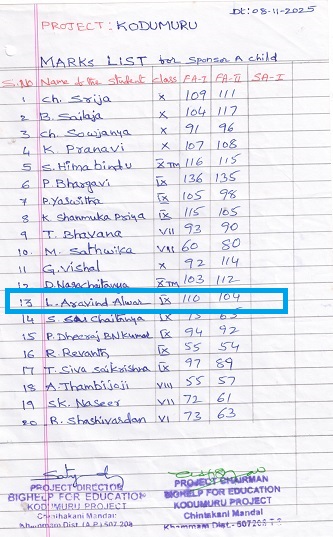 Dt: 08-11-2025
PROJECT: KODUMURU
MARKS LIST for Sponsor A child
S.No Name of the student class FA-I FA-II SA-I
1 Ch. Srija X 109 111
2 B. Sailaja X 104 117
3 Ch. Sowjanya X 91 96
4 K. Pranavi X 107 108
5 S. Himabindu X TM 116 115
6 P. Bhargavi IX 136 135
7 P. Yaswitha IX 105 98
8 K Shanmuka Priya IX 115 105
9 T. Bhavana VII 93 90
10 M. Sathwika VII 60 80
11 G. Vishal X 92 114
12 D. Nagachaitanya X TM 103 112
13 L. Aravind Alwar IX 110 104
14 S. Sai Chaitanya IX 73 65
15 P. Dheeraj BN Kumar IX 94 92
16 R. Revanth IX 55 54
17 T. Siva Sai Krishna IX 97 89
18 A. Thambiloji VIII 55 57
19 SK. Naseer VII 72 61
20 R. Shashivardan VI 73 63
PROJECT DIRECTOR
BIGHELP FOR EDUCATION
KODUMURU PROJECT
Chintakani Mandal
Khammam Dist. (A.P.) 507 208
PROJECT CHAIRMAN
BIGHELP FOR EDUCATION
KODUMURU PROJECT
Chintakani Mandal
Khammam Dist.- 507208 T.S